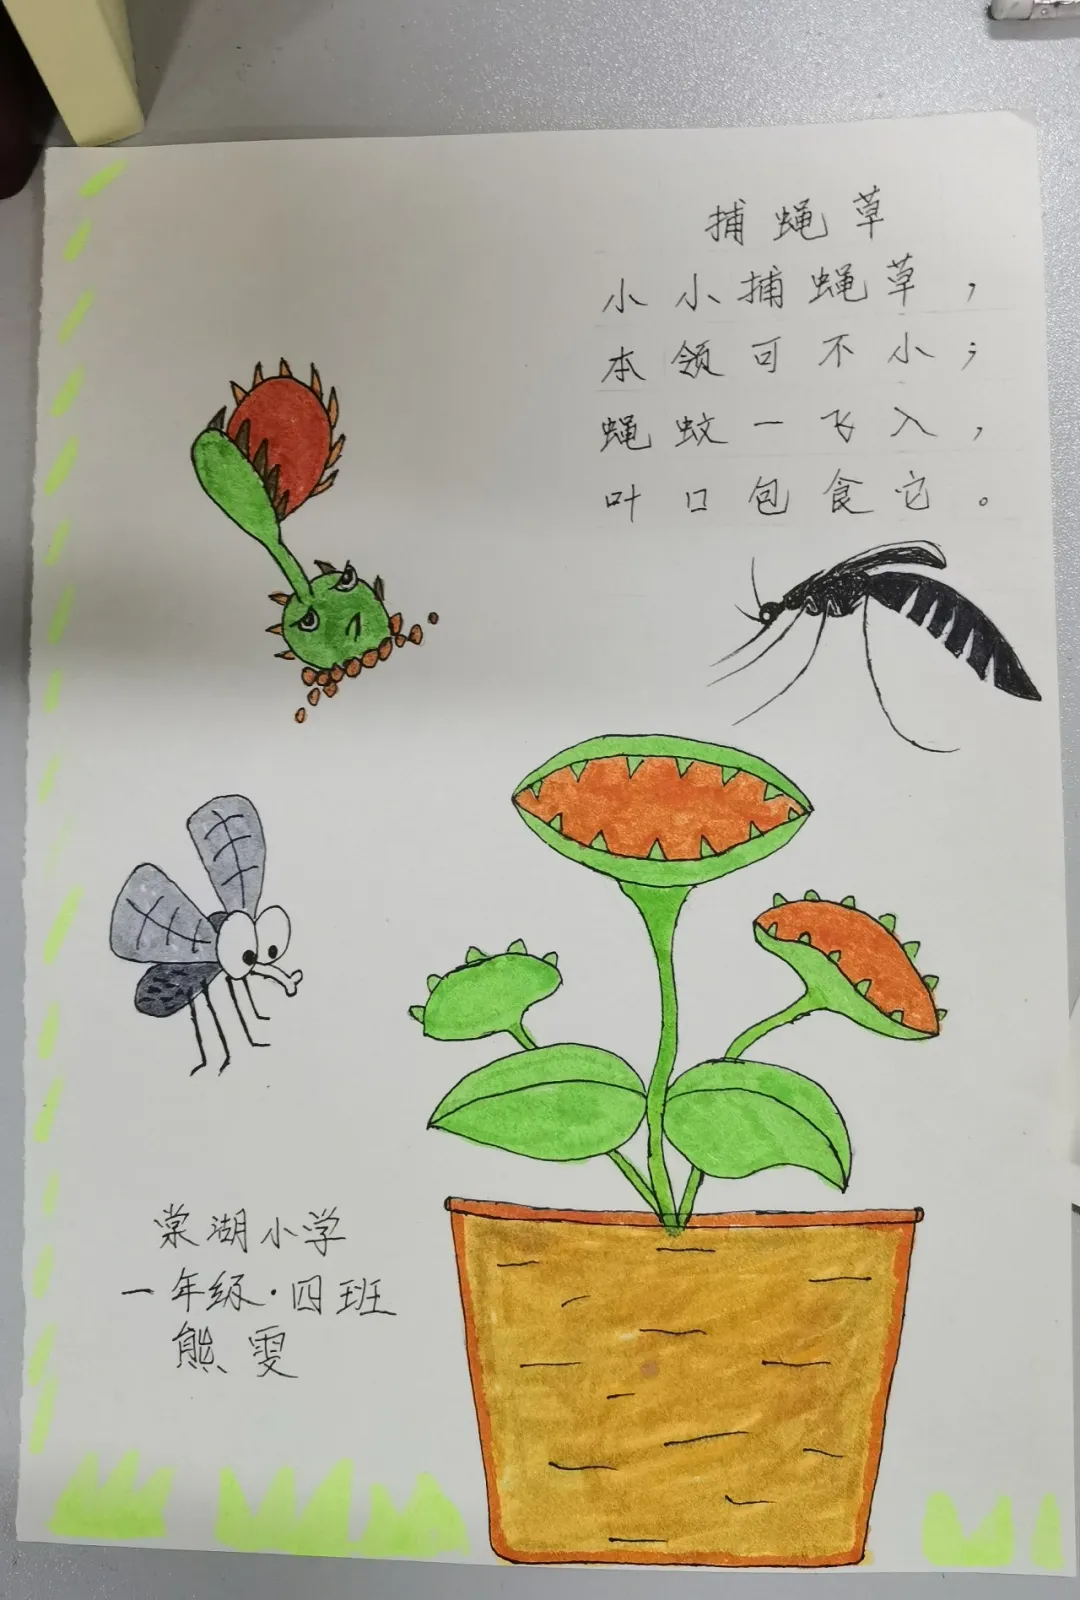 捕蝇草
小小捕蝇草，
本领可不小；
蝇蚊一飞入，
叶口包食它。
棠湖小学
一年级·四班
熊雯